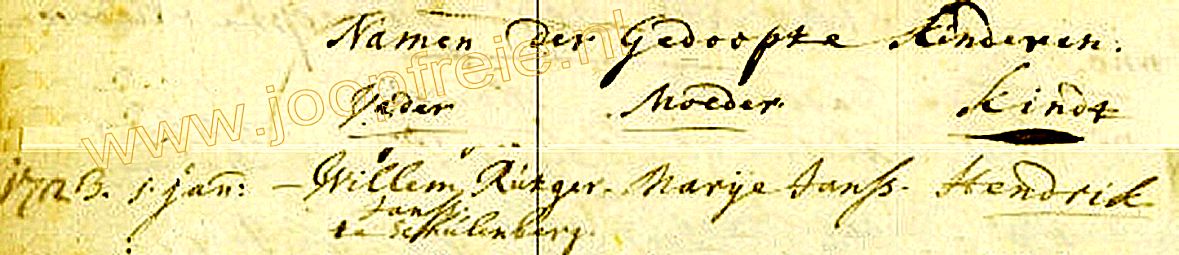 Namen der Gedoopte Kinderen.
Vader Moeder Kindt
www.joopfreie.nl
1723. 1. jan: – Willem Rutger- Marije Janss. Hendrik
Janss
te Schulenberg.